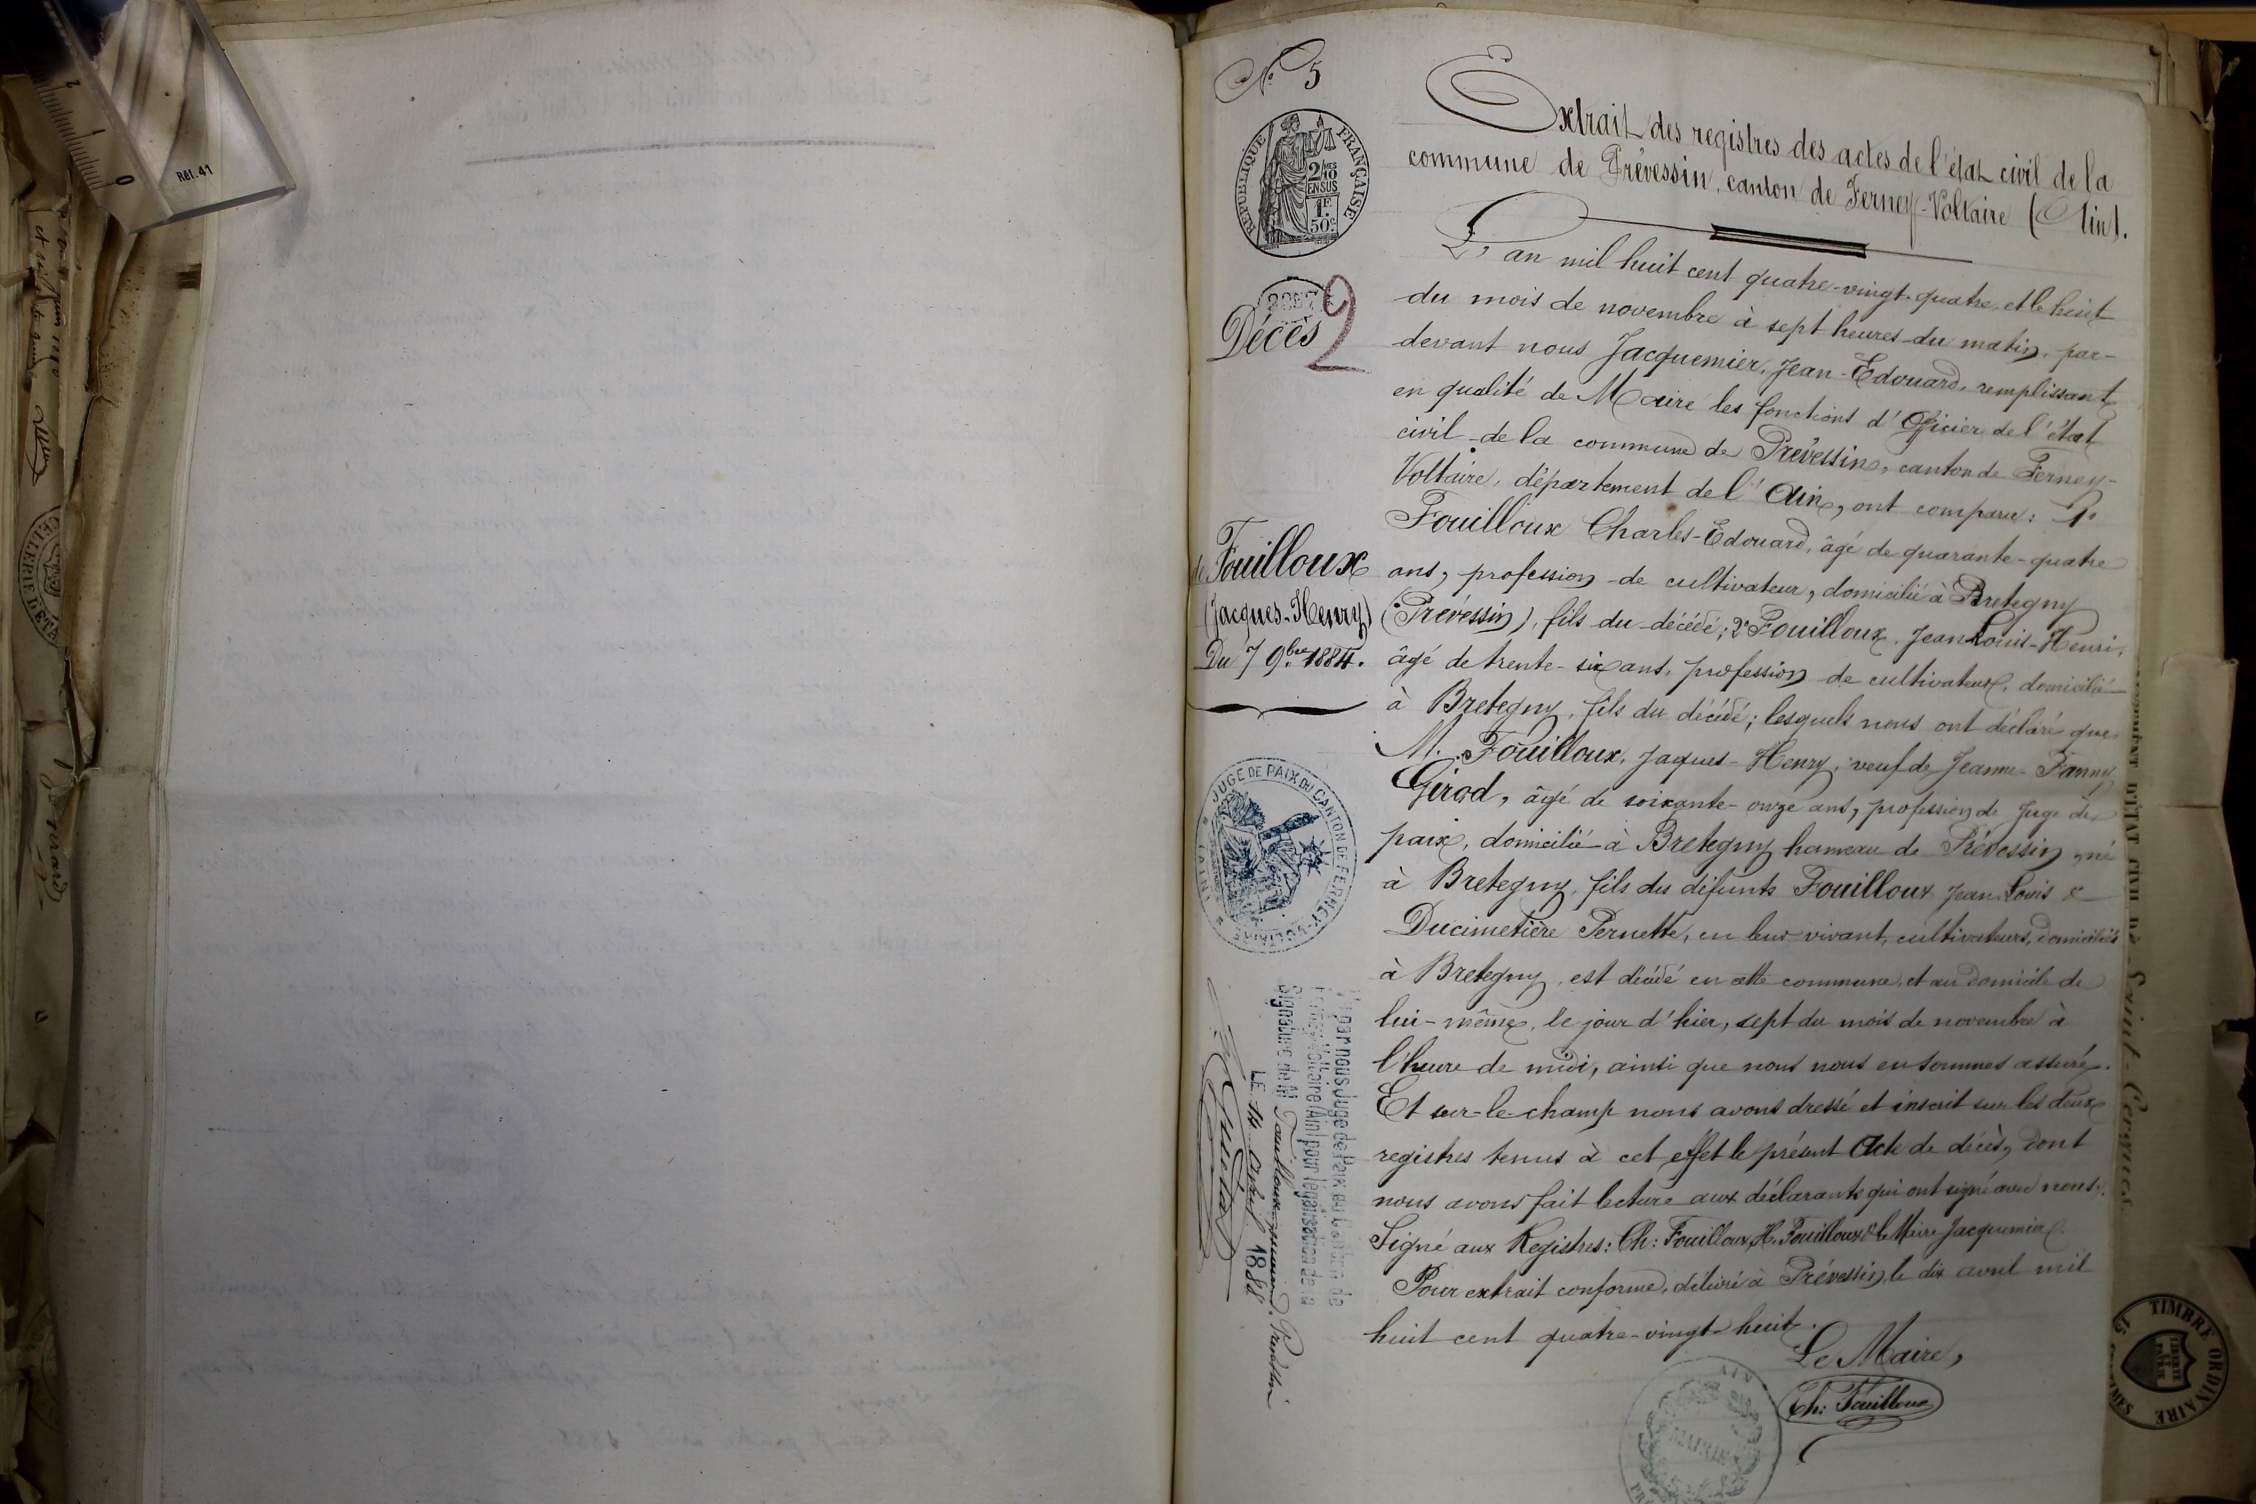 N° 5
Extrait des registres des actes de l'état civil de la
commune de Prévessin, canton de Ferney-Voltaire (Ain).
REPUBLIQUE FRANÇAISE
2/10
EN SUS
1F
50c
Décès
2
de Fouilloux
(Jacques-Henry)
Du 7 9bre 1884.
L'an mil huit cent quatre-vingt-quatre, et le huit
du mois de novembre à sept heures du matin, par-
devant nous Jacquemier, Jean-Edouard, remplissant
en qualité de Maire les fonctions d'Officier de l'état
civil de la commune de Prévessin, canton de Ferney-
Voltaire, département de l'Ain, ont comparu: 1°
Fouilloux Charles-Edouard, âgé de quarante-quatre
ans, profession de cultivateur, domicilié à Bretegny
(Prévessin), fils du décédé; 2° Fouilloux, Jean Louis-Henri,
âgé de trente-six ans, profession de cultivateur, domicilié
à Bretegny, fils du décédé; lesquels nous ont déclaré que
M. Fouilloux, Jaques-Henry, veuf de Jeanne-Fanny
Girod, âgé de soixante-onze ans, profession de Juge de
paix, domicilié à Bretegny hameau de Prévessin, né
à Bretegny, fils des défunts Fouilloux Jean Louis &
Ducimetière Pernette, en leur vivant, cultivateurs, domiciliés
à Bretegny, est décédé en cette commune, et au domicile de
lui-même, le jour d'hier, sept du mois de novembre à
l'heure de midi, ainsi que nous nous en sommes assuré.
Et sur-le-champ nous avons dressé et inscrit sur les deux
registres tenus à cet effet le présent Acte de décès, dont
nous avons fait lecture aux déclarants qui ont signé avec nous.
Signé aux Registres: Ch: Fouilloux, H. Fouilloux & le Maire Jacquemier
Pour extrait conforme, délivré à Prévessin, le dix avril mil
huit cent quatre-vingt-huit.
Le Maire,
Ch: Fouilloux
JUGE DE PAIX DU CANTON DE FERNEY-VOLTAIRE
(AIN)
Vu par nous Juge de Paix du Canton de
Ferney-Voltaire (Ain) pour légalisation de la
Signature de M. Fouilloux, maire Prévessin
LE 14 Avril 1888
AIN
MAIRIE
TIMBRE ORDINAIRE
Réf. 41
0
1
2